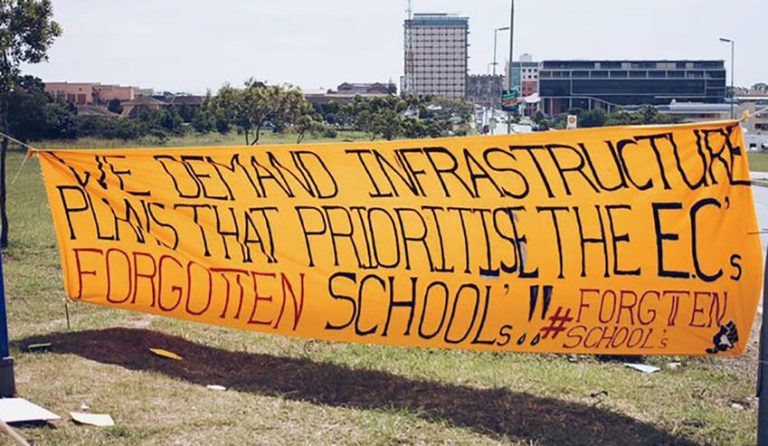 WE DEMAND INFRASTRUCTURE
PLANS THAT PRIORITISE THE E.C's
FORGOTTEN SCHOOL's..!!
#FORGTTEN
SCHOOL's